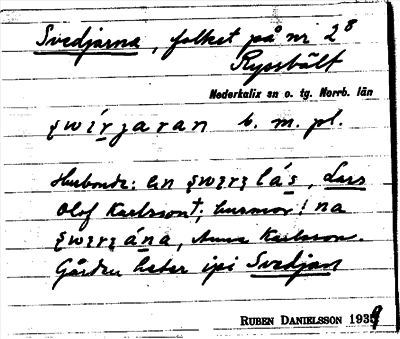 Svedjarna, folket på nr 2⁸
Ryssbält
Nederkalix sn o. tg. Norrb. län
b. m. pl.
Husbonde: en Lars
Olof Karlsson†; husmor: na
Anna Karlsson.
Gården heter ipi Svedjan
RUBEN DANIELSSON 1939